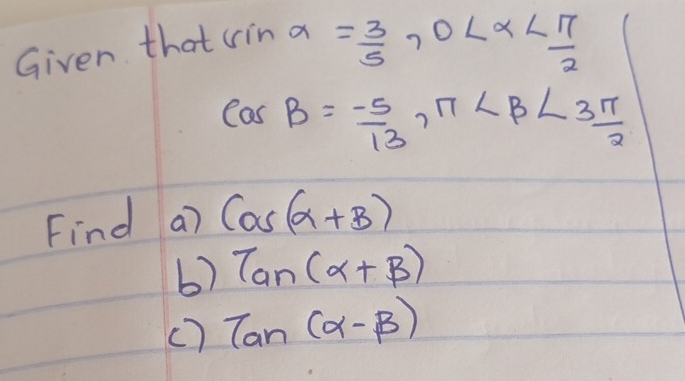 Given that sin α = 3/5, 0 < α < π/2
Cos β = -5/13, π < β < 3π/2
Find a) Cos(α + β)
b) Tan (α + β)
c) Tan (α - β)